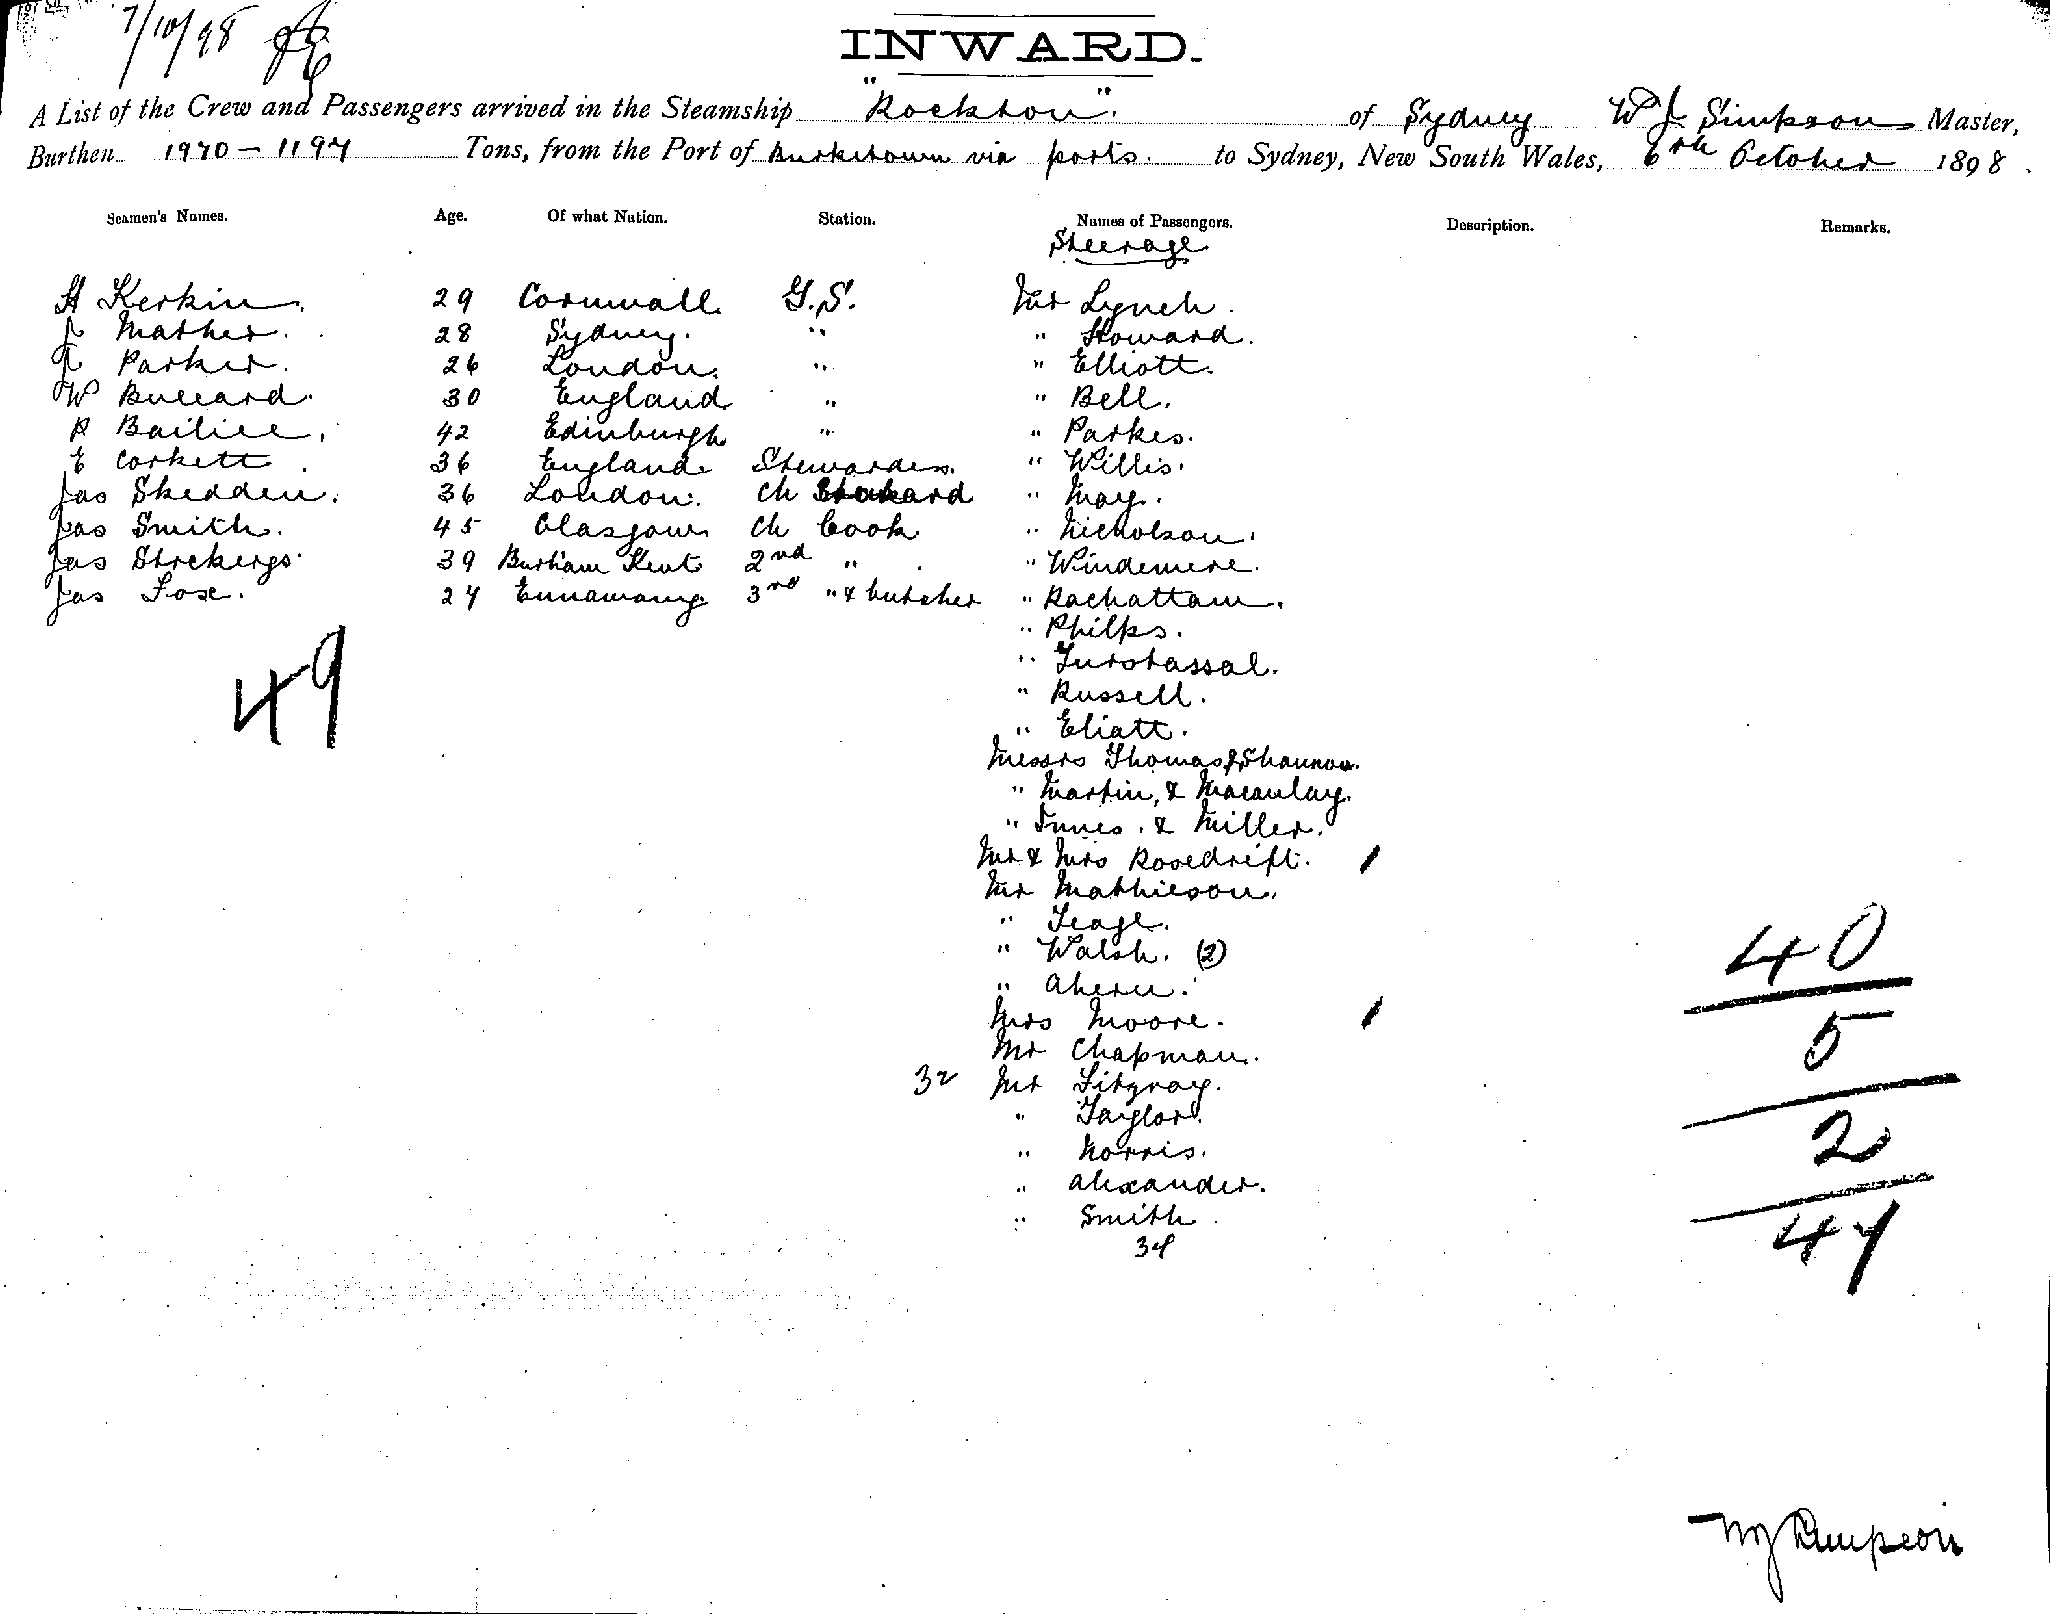 7/10/98
INWARD.
A List of the Crew and Passengers arrived in the Steamship "Rockton". of Sydney W J Simpson Master,
Burthen 1970 - 1197 Tons, from the Port of Burketown via ports. to Sydney, New South Wales, 6th October 1898.
Seamen's Names. Age. Of what Nation. Station. Names of Passengers. Description. Remarks.
Steerage
H Kerkin. 29 Cornwall. G.S. Mr Lynch.
J Mather. 28 Sydney. " " Howard.
J Parker. 26 London. " " Elliott.
W Bullard. 30 England " " Bell.
R Bailiee. 42 Edinburgh " " Parkes.
E Corkett. 36 England Stewardess. " Willis.
Jas Skedden. 36 London. Ch " May.
Jas Smith. 45 Glasgow Ch Cook " Nicholson.
Jas 39 Burham Kent 2nd " " Windemere.
Jas Foxe. 27 3rd " & butcher " Rachattam.
" Philps.
" Turstassal.
" Russell.
" Eliatt.
Messrs Thomas & Shannon.
" Martin, & Macaulay.
" Innes. & Miller.
Mr & Mrs Rosedrift.
Mr Mathieson.
" Teage.
" Walsh. (2)
" Ahern.
Mrs Moore.
Mr Chapman.
32 Mr Fitzroy.
" Taylor.
" Norris.
" Alexander.
" Smith.
34
49
40
5
2
47
W J Simpson